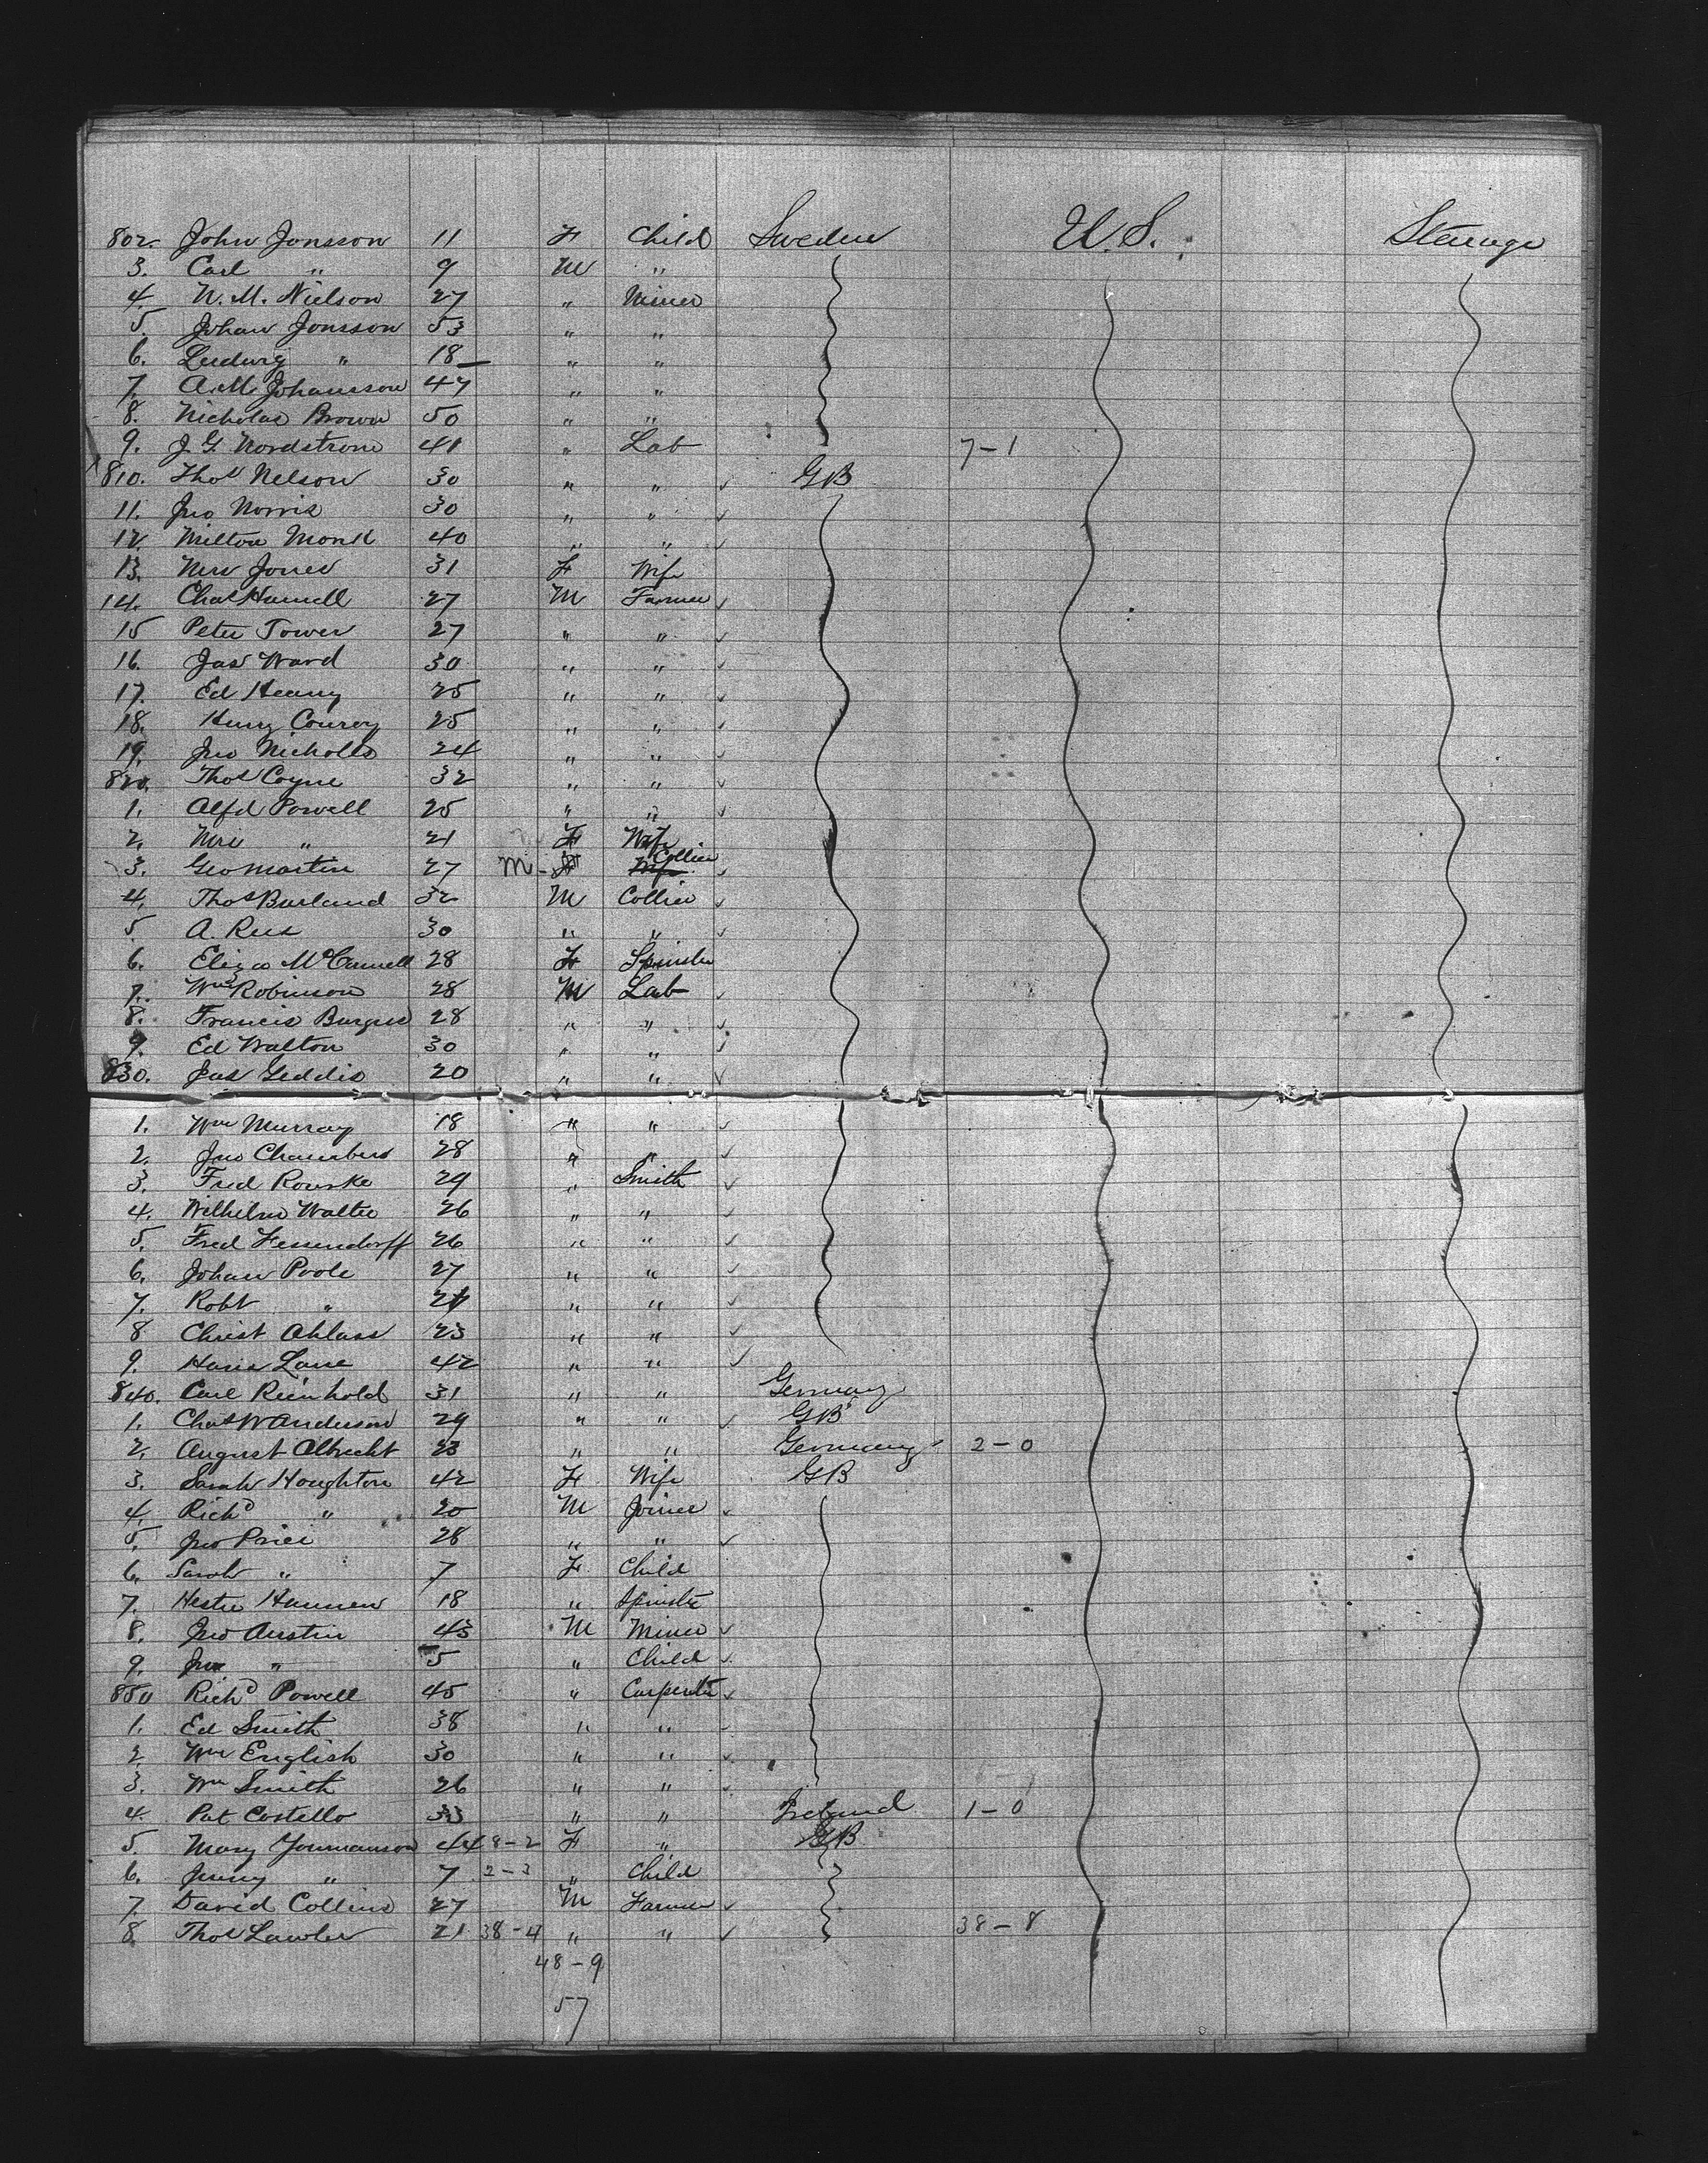 802. John Jonsson 11 F Child Sweden U.S. Steerage
3. Carl " 9 M "
4. N. M. Nielson 27 " Miner
5. Johan Jonsson 53 " "
6. Ludwig " 18 " "
7. A. M. Johansson 47 " "
8. Nicholas Brown 50 " "
9. J. G. Nordstrom 41 " Lab 7-1
810. Thos Nelson 30 " " GB
11. Jno Norris 30 " "
12. Milton Monk 40 " "
13. Mrs Jones 31 F Wife
14. Chas Hamell 27 M Farmer
15 Peter Tower 27 " "
16. Jas Ward 30 " "
17. Ed Heany 25 " "
18. Henry Conroy 25 " "
19. Jno Nicholls 24 " "
820. Thos Coyne 32 " "
1. Alfd Powell 25 " "
2. Mrs " 21 F Wife
3. Geo Martin 27 M Collier
4. Thos Burland 32 M Collier
5. A. Rees 30 " "
6. Eliza McConnell 28 F Spinster
7. Wm Robinson 28 M Lab
8. Francis Burgess 28 " "
9. Ed Walton 30 " "
830. Jas Geddis 20 " "
1. Wm Murray 18 " "
2. Jno Chambers 28 " "
3. Fred Rourke 29 " Smith
4. Wilhelm Walter 26 " "
5. Fred Fessendorff 26 " "
6. Johan Poole 27 " "
7. Robt " " "
8 Christ Ahlass 23 " "
9. Lane 42 " "
840. Carl Reinhold 31 " " Germany
1. Chas W Anderson 29 " " GB
2. August Albrecht 23 " " Germany 2-0
3. Sarah Houghton 42 F Wife GB
4. Richd " 20 M Joiner
5. Jno Price 28 " "
6. Sarah " 7 F Child
7. Hester Hannen 18 " Spinster
8. Jno Austin 43 M Miner
9. Jno " 5 " Child
850 Richd Powell 45 " Carpenter
1. Ed Smith 38 " "
2 Wm English 30 " "
3. Wm Smith 26 " "
4. Pat Costello 33 " " Ireland 1-0
5. Mary 44 8-2 F " GB
6. Jenny " 7 2-3 " Child
7. David Collins 27 M Farmer
8. Thos Lawler 21 38-4 " " 38-8
48-9
57